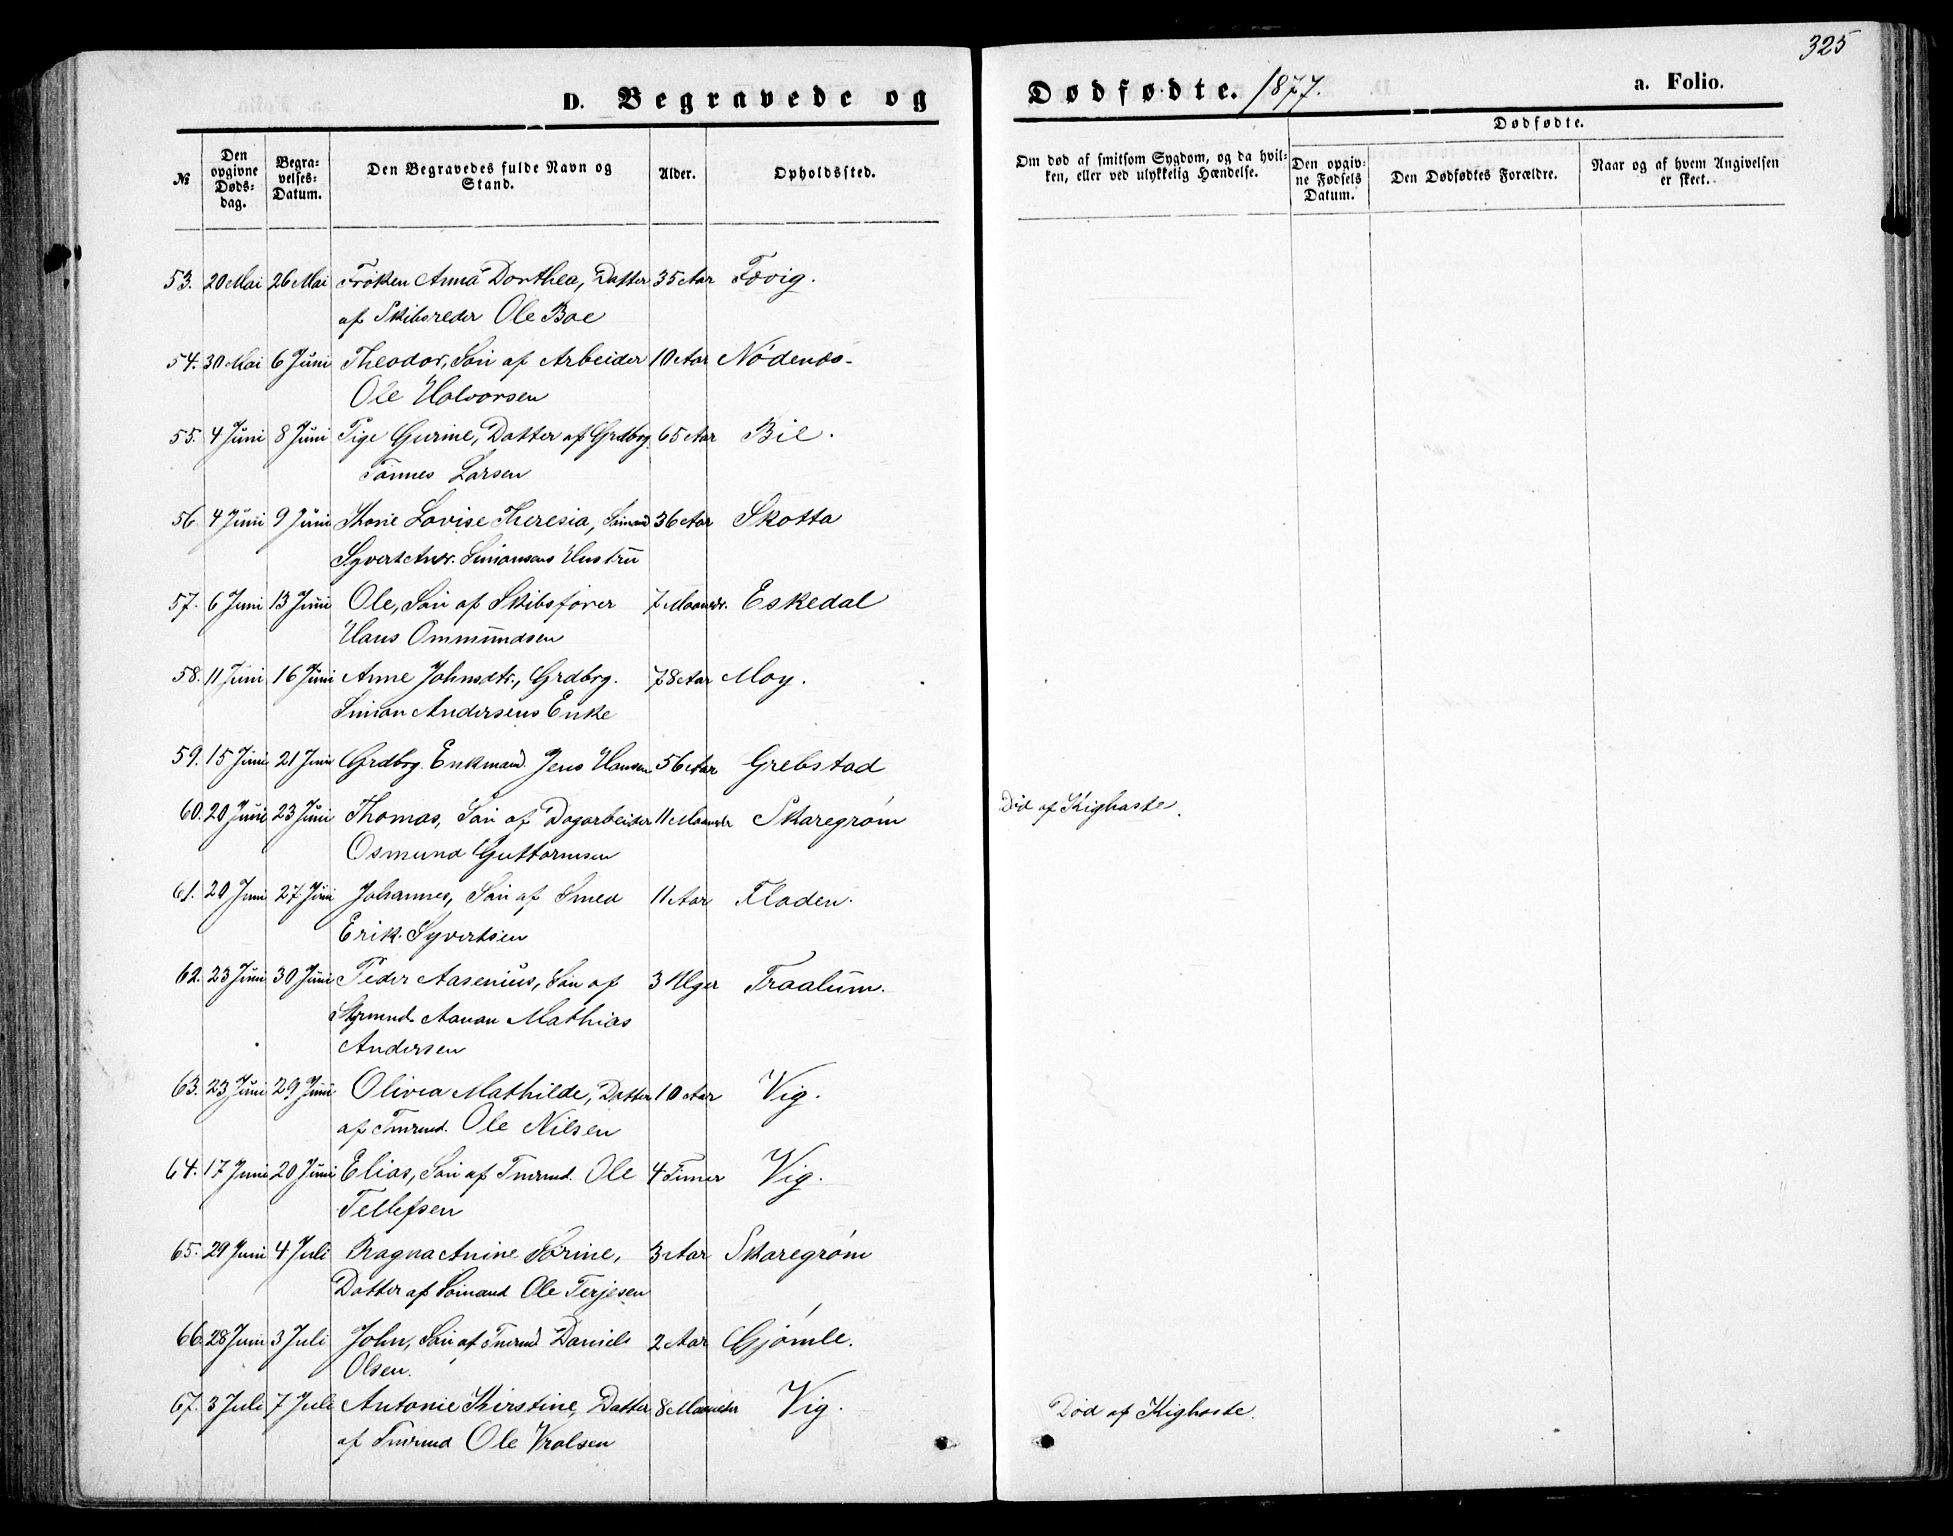 325
D. Begravede og Dødfødte. 1877. a. Folio.
№
Den opgivne Døds-dag.
Begra-velses-Datum.
Den Begravedes fulde Navn og Stand.
Alder.
Opholdssted.
Om død af smitsom Sygdom, og da hvil-ken, eller ved ulykkelig Hændelse.
Dødfødte.
Den opgiv-ne Fødsels Datum.
Den Dødfødtes Forældre.
Naar og af hvem Angivelsen er skeet.
53. 20 Mai 26 Mai Frøken Anna Dorthea, Datter 35 Aar Fævig.
af Skibsreder Ole Boe
54. 30 Mai 6 Juni Theodor, Søn af Arbeider 10 Aar Nødenæs.
Ole Halvorsen
55. 4 Juni 8 Juni Pige Gurine, Datter af Grdbrg. 65 Aar Bie.
Tønnes Larsen
56. 4 Juni 9 Juni Lovise Theresia, Sømand 36 Aar Skotta
Syvert Andr. Simonsens Hustru
57. 6 Juni 13 Juni Ole, Søn af Skibsfører 7 Maaneder Eskedal
Hans Ommundsen
58. 11 Juni 16 Juni Anne Johnsdtr., Grdbrg. 78 Aar Moy.
Simon Andersens Enke
59. 15 Juni 21 Juni Grdbrg. Enkmand Jens Hansen 56 Aar Grebstad
60. 20 Juni 23 Juni Thomas, Søn af Dagarbeider 11 Maaneder Skaregrøm Død af Kighoste.
Osmund Guttormsen
61. 20 Juni 27 Juni Johannes, Søn af Smed 11 Aar Fladen.
Erik Syvertsen
62. 23 Juni 30 Juni Peder Aasenius, Søn af 3 Uger Traalum.
Styrmd. Aanon Mathias
Andersen
63. 23 Juni 29 Juni Olivia Mathilde, Datter 10 Aar Vig.
af Tmrmd. Ole Nilsen
64. 17 Juni 20 Juni Elias, Søn af Tmrmd. Ole 4 Timer Vig.
Tellefsen
65. 29 Juni 4 Juli Ragna Anine Sørine, 3 Aar Skaregrøm
Datter af Sømand Ole Terjesen
66. 28 Juni 3 Juli John, Søn af Tmrmd Daniel 2 Aar Gjømle.
Olsen.
67. 3 Juli 7 Juli Antonie Kirstine, Datter 8 Maaneder Vig. Død af Kighoste.
af Tmrmd Ole Vralsen